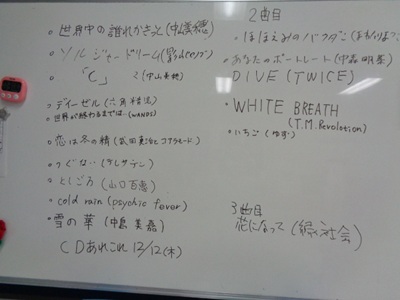 世界中の誰よりきっと(中山美穂)
ソルジャードリーム(影山ヒロノブ)
「C」(中山美穂)
ディーゼル(六角精児)
世界が終わるまでは…(WANDS)
恋は冬の精(武田真治と
つぐない(テレサテン)
としごろ(山口百恵)
cold rain(psychic fever)
雪の華(中島美嘉)
CDあれこれ 12/12(木)
2曲目
ほほえみの
あなたのポートレート(中森明菜)
DIVE(TWICE)
WHITE BREATH
(T.M.Revolution)
いちご(ゆず)
3曲目
花になって(緑黄社会)